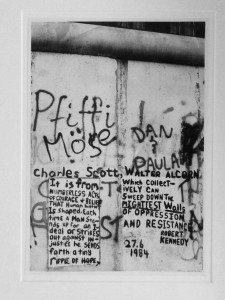 Pfiffi
Möse
DAN
&
PAULA
Charles Scott, WALTER ALCORN
It is from
NUMBERLESS ACTS
OF COURAGE & BELIEF
THAT Human history
Is shaped. Each
time A MAN Sta-
nds up for an I-
deal or strikes
out against IN-
justice he sends
forth a tiny
RIPPLE OF HOPE,
Which Collect-
iVELY CAN
SWEEP DOWN THE
MIGHTIEST Walls
OF OPPRESSION
AND RESISTANCE
ROBERT
KENNEDY
27.6
1984